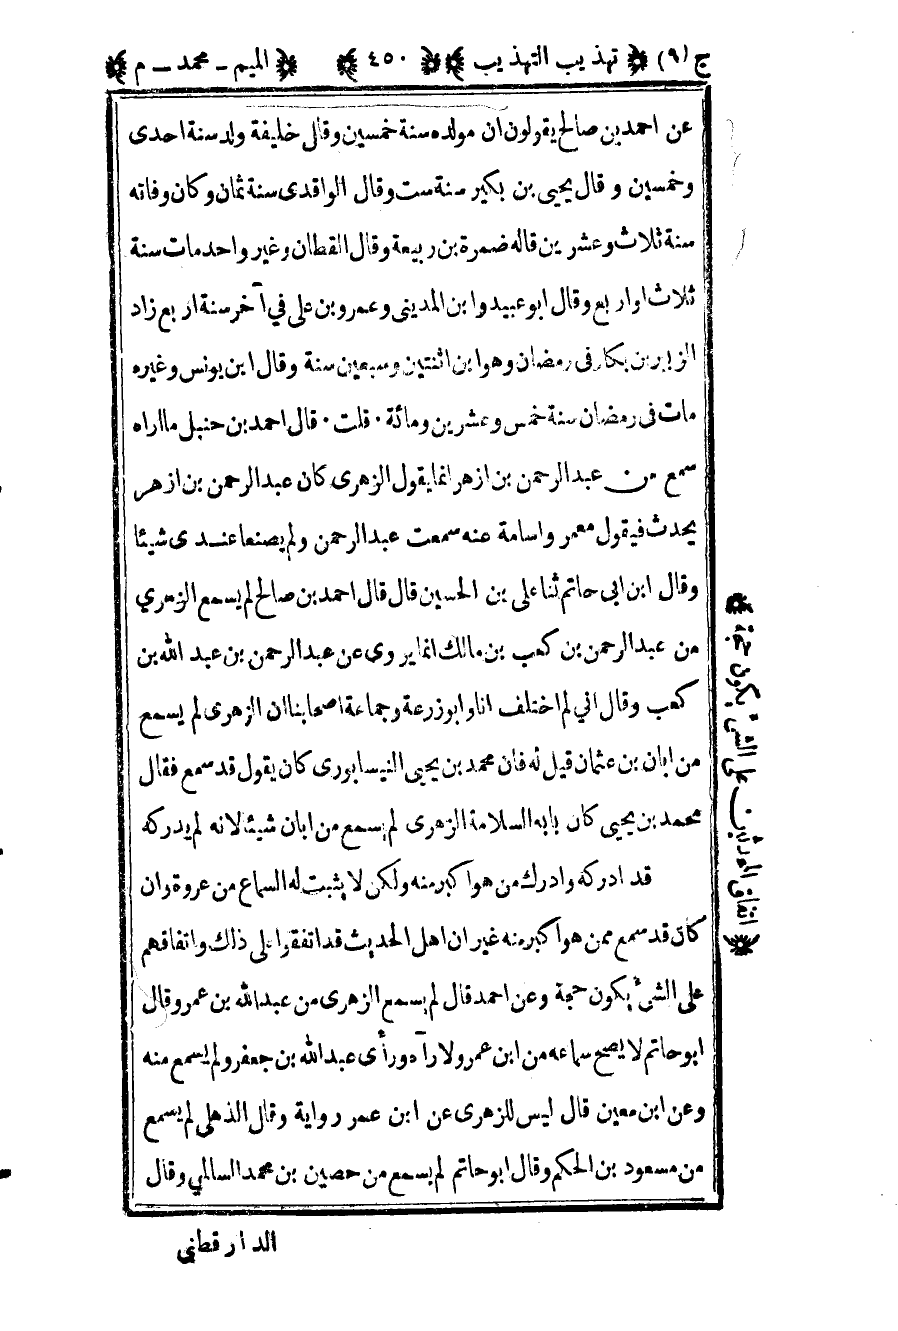 ج (٩) تهذيب التهذيب ٤٥٠ الميم - محمد - م
عن احمد بن صالح يقولون ان مولده سنة خمسين وقال خليفة ولد سنة احدى
وخمسين و قال يحيى بن بكير سنة ست وقال الواقدى سنة ثمان وكان وفاته
سنة ثلاث وعشرين قاله ضمرة بن ربيعة وقال القطان وغير واحد مات سنة
ثلاث او اربع وقال ابو عبيد وابن المدينى وعمرو بن على في آخر سنة اربع زاد
الزبير بن بكار فى رمضان وهو ابن اثنتين وسبعين سنة وقال ابن يونس وغيره
مات فى رمضان سنة خمس وعشرين ومائة ٠ قلت ٠ قال احمد بن حنبل ما اراه
سمع من عبدالرحمن بن ازهر انما يقول الزهرى كان عبدالرحمن بن ازهر
يحدث فيقول معمر واسامة عنه سمعت عبدالرحمن ولم يصنعا عندى شيئا
وقال ابن ابى حاتم ثنا على بن الحسين قال قال احمد بن صالح لم يسمع الزهري
من عبدالرحمن بن كعب بن مالك انما يروى عن عبدالرحمن بن عبد الله بن
كعب وقال اني لم اختلف انا وابو زرعة وجماعة اصحابنا ان الزهرى لم يسمع
من ابان بن عثمان قيل له فان محمد بن يحيى النيسابورى كان يقول قد سمع فقال
محمد بن يحيى كان بابه السلامة الزهرى لم يسمع من ابان شيئا لانه لم يدركه
قد ادركه وادرك من هو اكبر منه ولكن لا يثبت له السماع من عروة وان
كان قد سمع ممن هو اكبر منه غير ان اهل الحديث قد اتفقوا على ذلك واتفاقهم
على الشئ يكون حجة وعن احمد قال لم يسمع الزهرى من عبدالله بن عمر وقال
ابو حاتم لا يصح سماعه من ابن عمر ولا رآه ورأى عبدالله بن جعفر ولم يسمع منه
وعن ابن معين قال ليس للزهرى عن ابن عمر رواية وقال الذهلى لم يسمع
من مسعود بن الحكم وقال ابو حاتم لم يسمع من حصين بن محمد السالمي وقال
الدارقطني
اتفاق المحدثين على الشئ يكون حجة